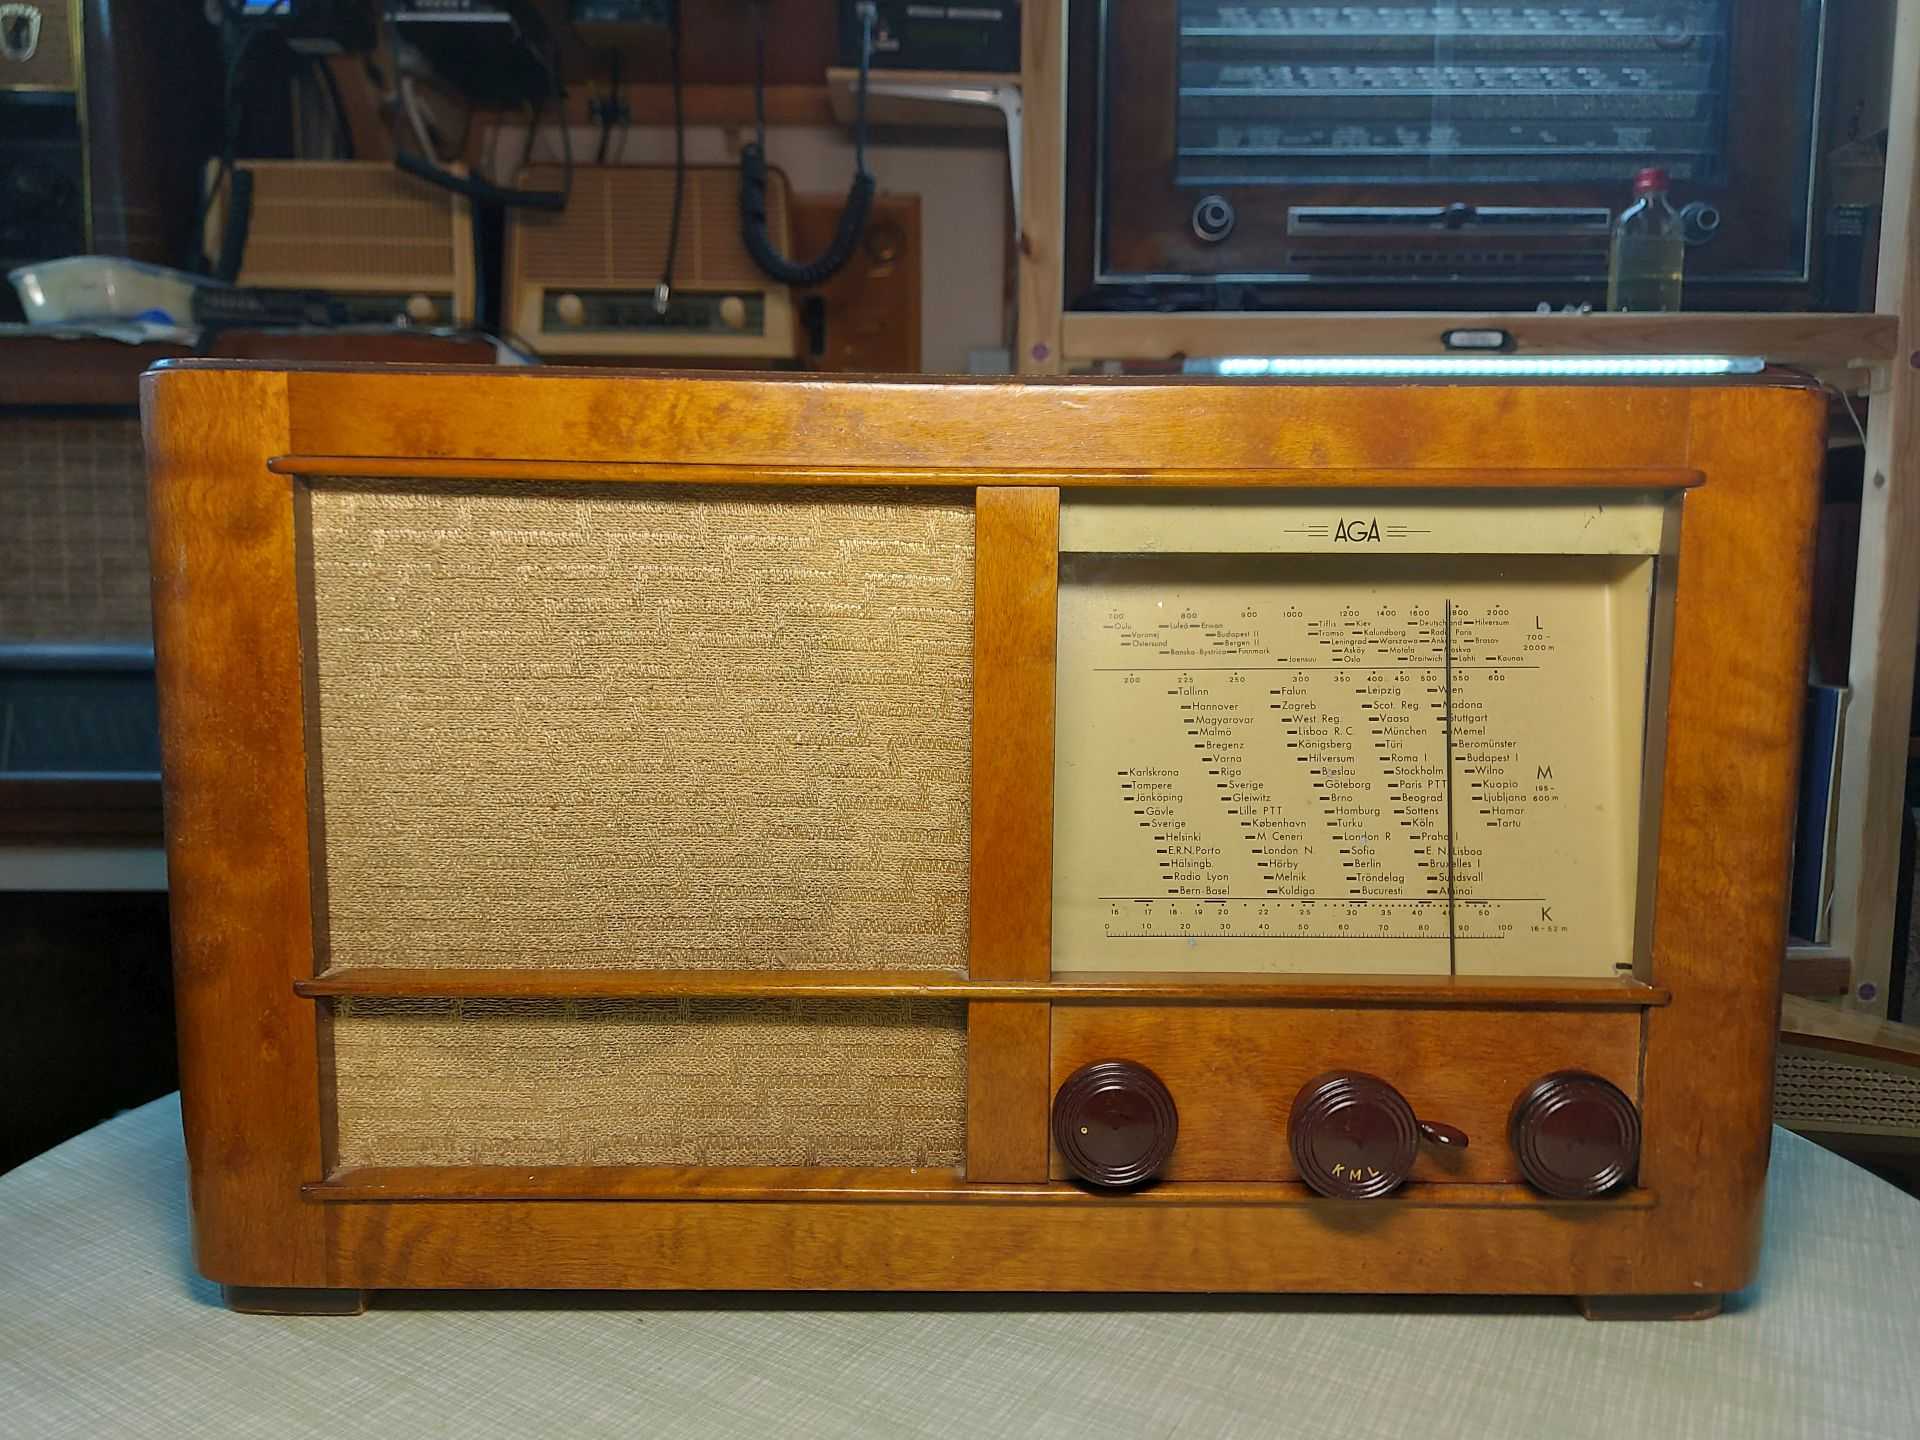 AGA
700 800 900 1000 1200 1400 1600 1800 2000
L
700-
2000 m
Oulu Luleå Erivan Tiflis Kiev Deutschland Hilversum
Voronej Budapest II Tromsö Kalundborg Radio Paris
Östersund Bergen II Leningrad Warszawa Ankara Brasov
Banska-Bystrica Finnmark Asköy Motala Moskva
Joensuu Oslo Droitwich Lahti Kaunas
200 225 250 300 350 400 450 500 550 600
Tallinn Falun Leipzig Wien
Hannover Zagreb Scot. Reg. Madona
Magyarovar West Reg. Vaasa Stuttgart
Malmö Lisboa R. C. München Memel
Bregenz Königsberg Türi Beromünster
Varna Hilversum Roma I Budapest I
Karlskrona Riga Breslau Stockholm Wilno
M
195-
600 m
Tampere Sverige Göteborg Paris PTT Kuopio
Jönköping Gleiwitz Brno Beograd Ljubljana
Gävle Lille PTT Hamburg Sottens Hamar
Sverige København Turku Köln Tartu
Helsinki M. Ceneri London R Praha I
E.R.N. Porto London N. Sofia E. N. Lisboa
Hälsingb. Hörby Berlin Bruxelles I
Radio Lyon Melnik Tröndelag Sundsvall
Bern-Basel Kuldiga Bucuresti Athinai
16 17 18 19 20 22 25 30 35 40 45 50
K
16-52 m
0 10 20 30 40 50 60 70 80 90 100
K M L